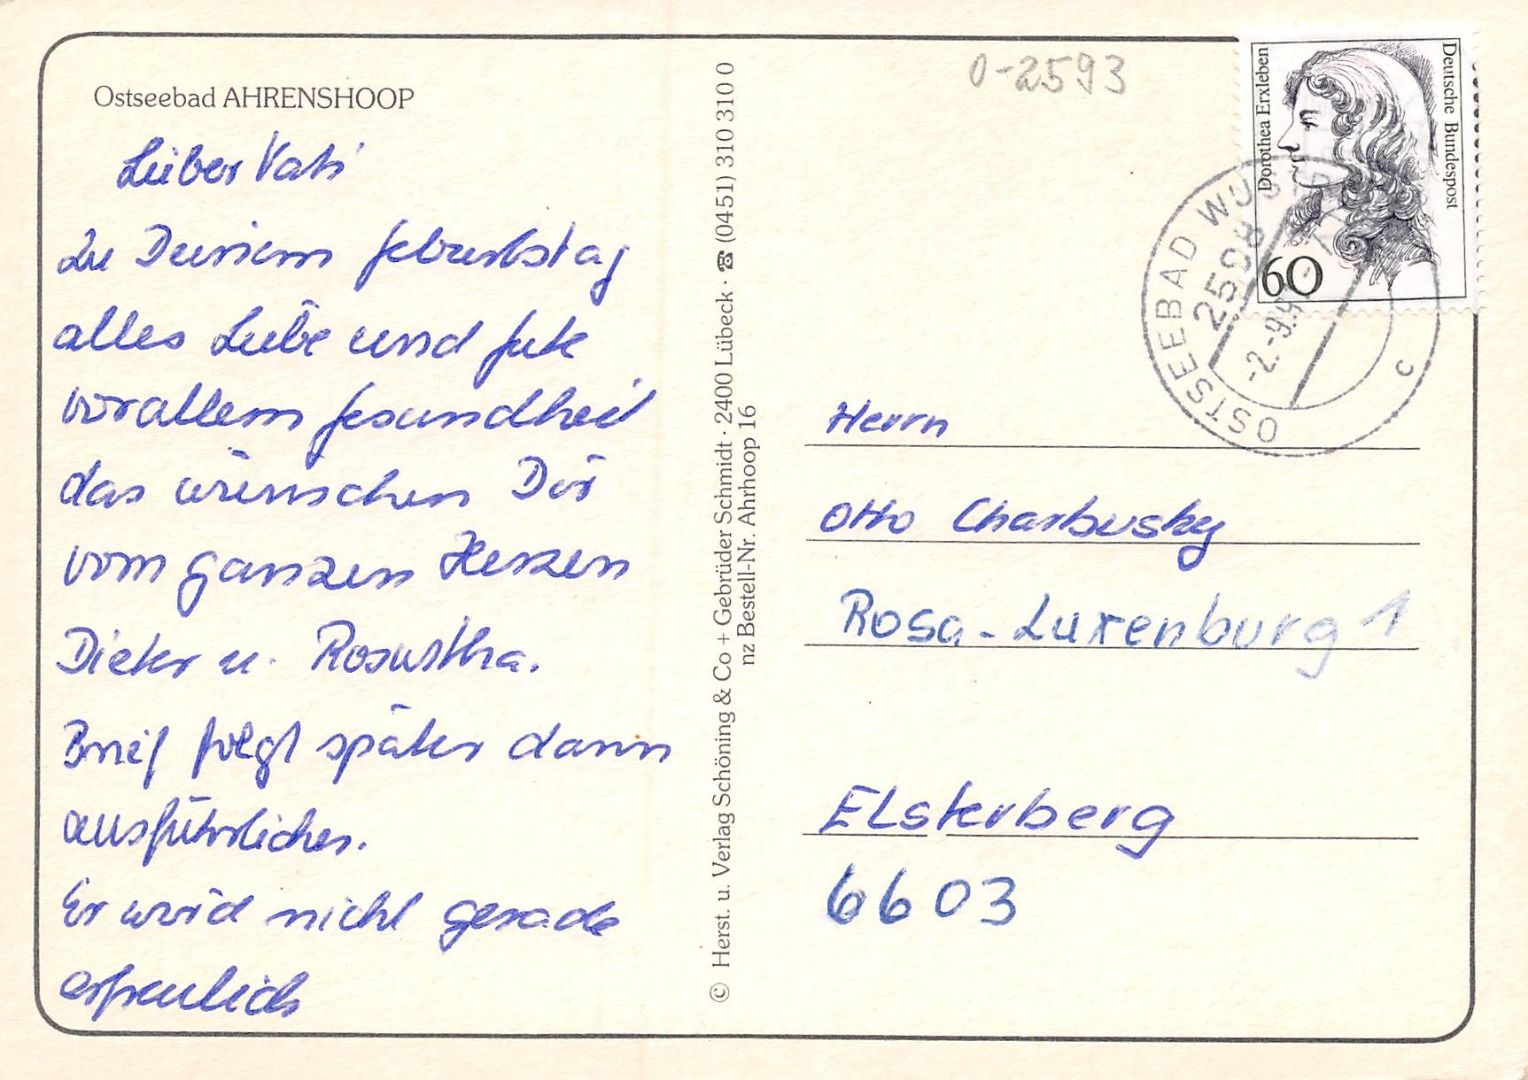 Ostseebad AHRENSHOOP
Lieber Vati
Zu Deinem Geburtstag
alles Liebe und Gute
vorallem Gesundheit
das wünschen Dir
vom ganzen Herzen
Dieter u. Roswitha.
Brief folgt später dann
ausführlicher.
Er wird nicht gerade
erfreulich
© Herst. u. Verlag Schöning & Co + Gebrüder Schmidt · 2400 Lübeck · ☎ (0451) 310 310 0
nz Bestell-Nr. Ahrhoop 16
0-2593
Dorothea Erxleben
Deutsche Bundespost
60
OSTSEEBAD WUSTR
2598
-2.-9.9
c
Herrn
Otto Charbusky
Rosa-Luxenburg 1
Elsterberg
6603